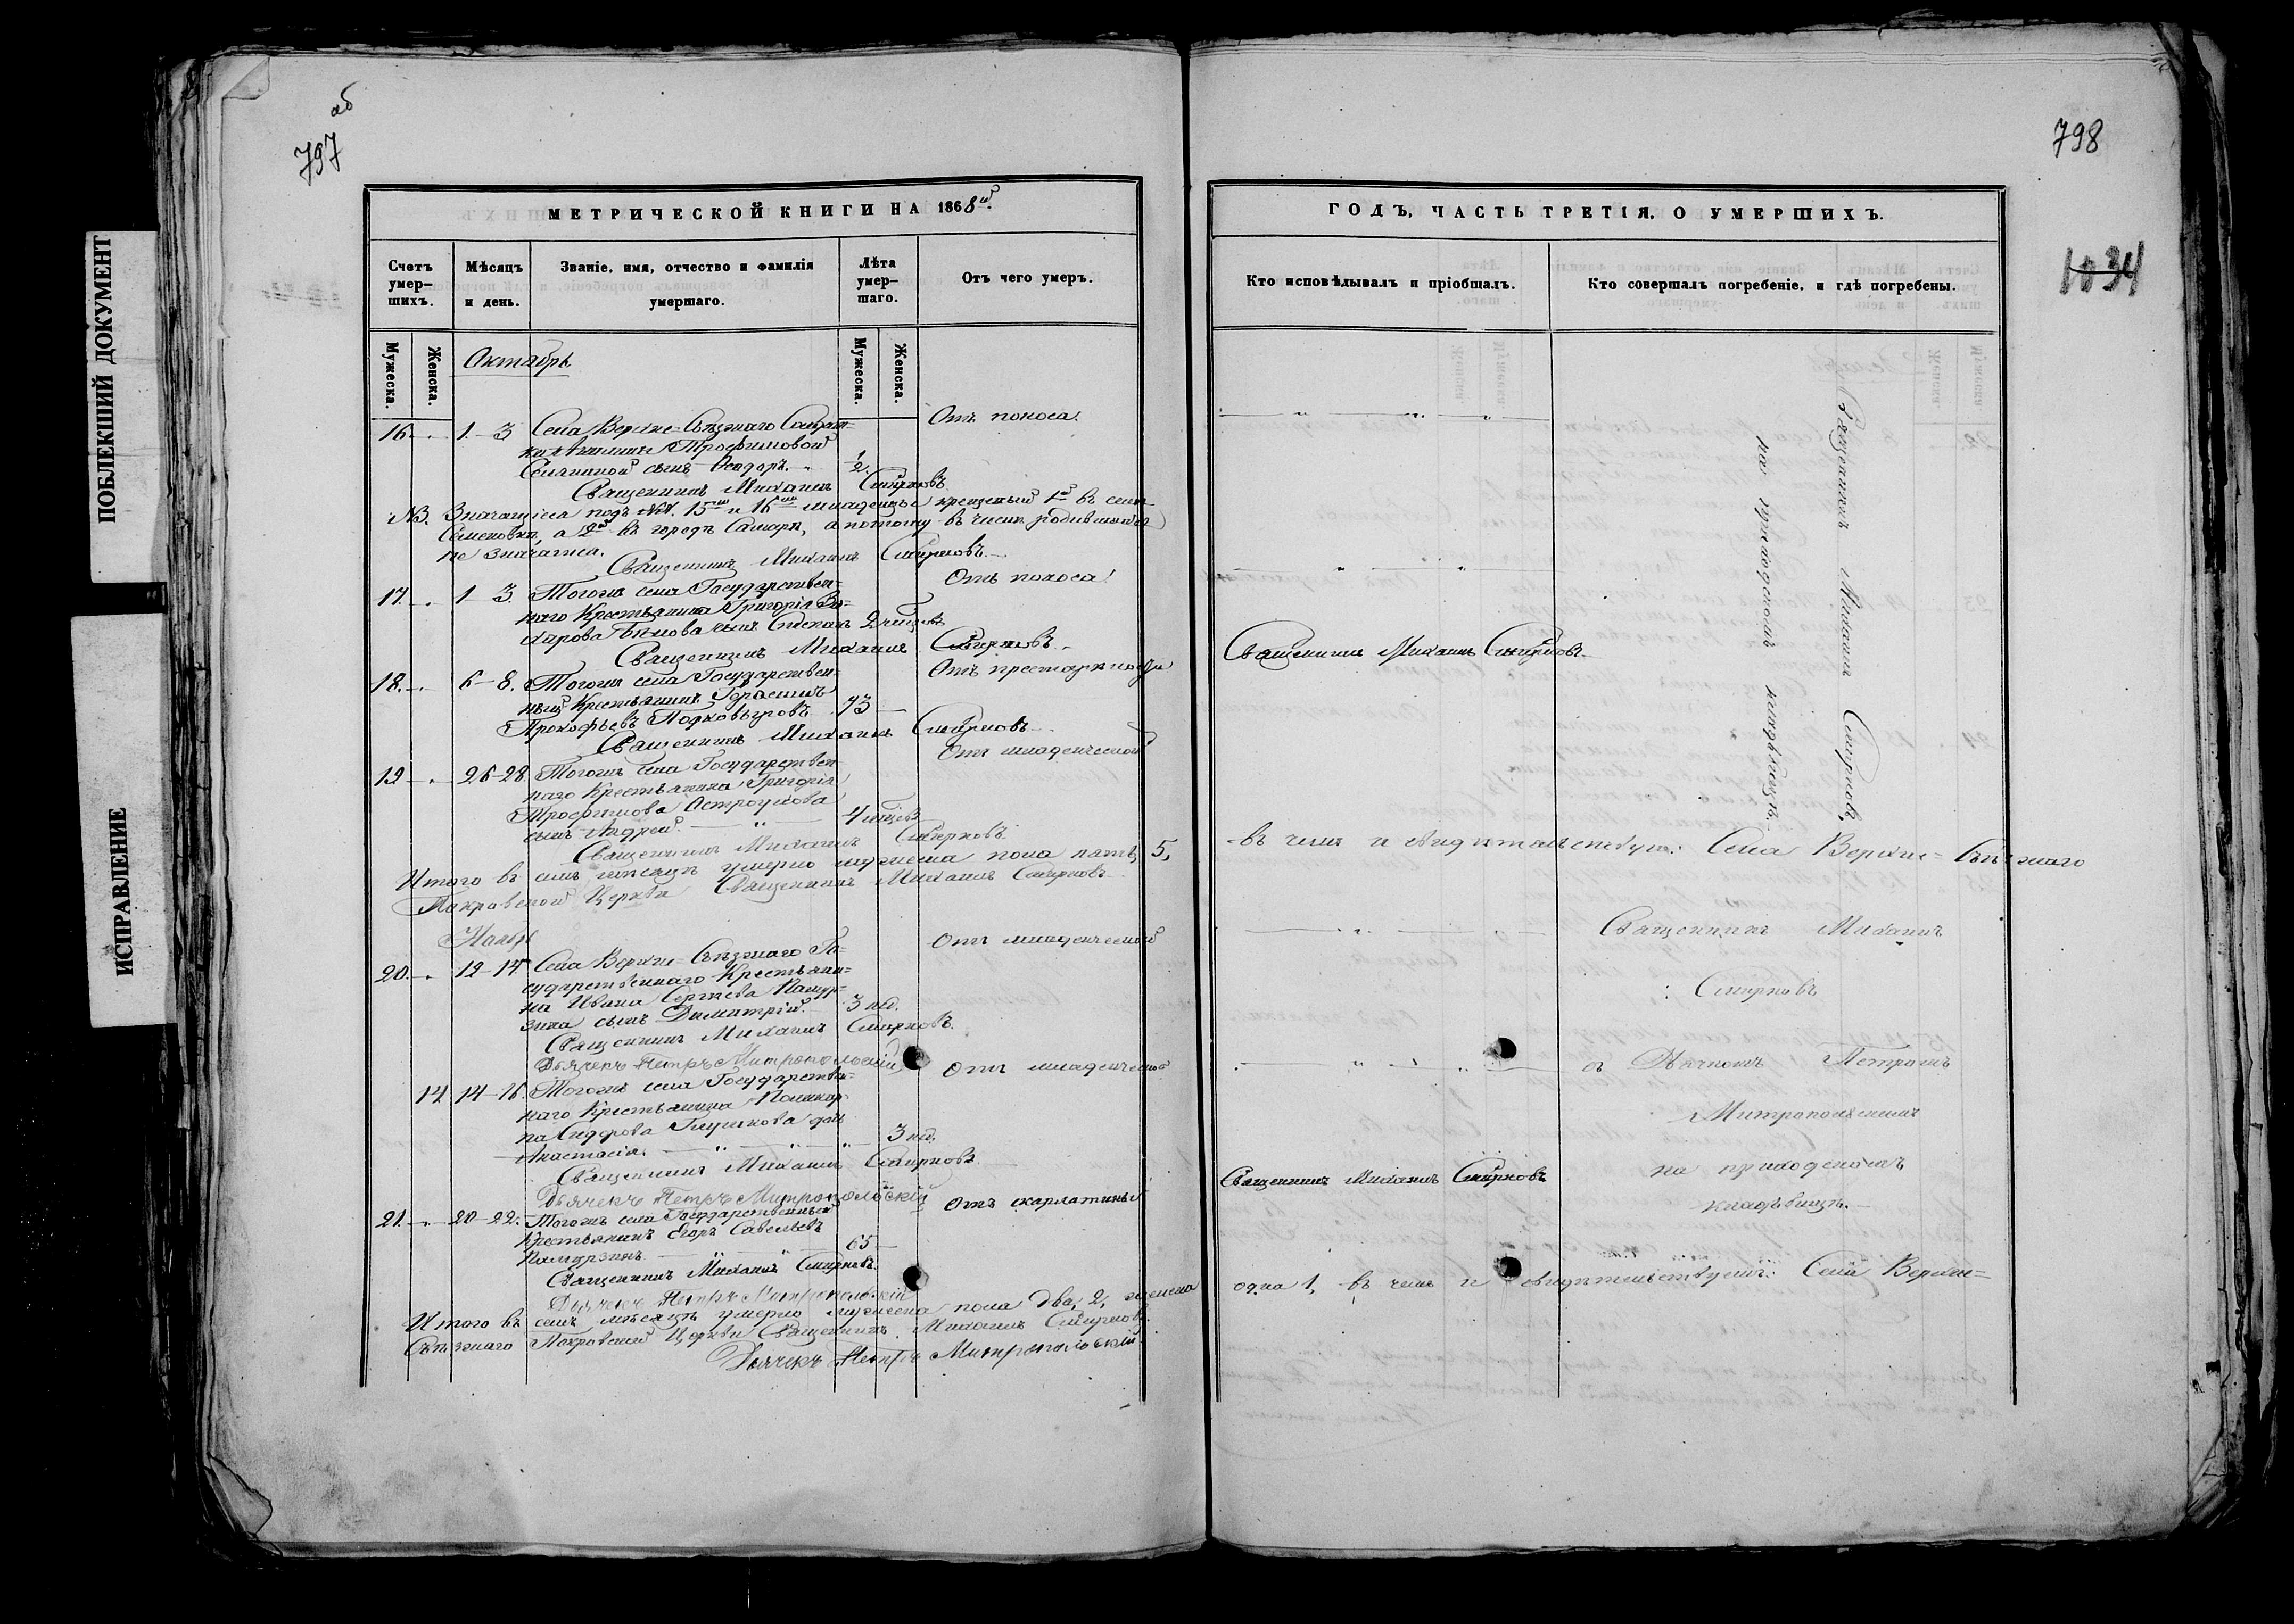 ПОБЛЕКШИЙ ДОКУМЕНТ
ИСПРАВЛЕНИЕ
об
797
МЕТРИЧЕСКОЙ КНИГИ НА 1868й.
Счетъ умер-шихъ.
Мѣсяцъ и день.
Званіе, имя, отчество и фамилія умершаго.
Лѣта умер-шаго.
Отъ чего умеръ.
Мужеска.
Женска.
Мужеска.
Женска.
Октябрь
16. 1.-3 Села Верхне-Съѣзжаго Отъ поноса.
Трофимовой
сынъ Ѳеодоръ. 1/2.
Священникъ Михаилъ Смирновъ
NВ. Значащіеся подъ №№. 15мъ и 16мъ младенцы крещены 1й въ селѣ
а 2й въ городѣ Самарѣ, а потому въ числѣ родившихся
не значатся.
Священникъ Михаилъ Смирновъ.
17. 1-3. Тогожъ села Государствен- Отъ поноса
наго Крестьянина Григорія За-
харова сынъ 2 мѣсяц.
Священникъ Михаилъ Смирновъ.
18. 6-8. Тогожъ села Государствен- Отъ престарѣлости
ный Крестьянинъ Герасимъ
Прокофьевъ 73
Священникъ Михаилъ Смирновъ.
19 26-28. Тогожъ села Государствен Отъ младенческой
наго Крестьянина Григорія
Трофимова Остроухова
сынъ Андрей. 4 мѣсяц.
Священникъ Михаилъ Смирновъ
Итого въ семъ мѣсяцѣ умерло мужеска пола пять, 5,
Покровской Церкви Священникъ Михаилъ Смирновъ
Ноябрь
20. 12-14 Села Верхне-Съѣзжаго Го- Отъ младенческой
сударственнаго Крестьяни-
на Ивана Сергѣева Камур-
зина сынъ Димитрій. 3 нед.
Священникъ Михаилъ Смирновъ.
Дьячекъ Петръ Митропольскій
14 14-16. Тогожъ села Государствен- Отъ младенческой
наго Крестьянина Поликар-
па Сидорова Глушкова дочь
Анастасія. 3 нед.
Священникъ Михаилъ Смирновъ.
Дьячекъ Петръ Митропольскій
21. 20-22. Тогожъ села Государственный Отъ скарлатины
Крестьянинъ Егоръ Савельевъ
Камурзинъ 65
Священникъ Михаилъ Смирновъ.
Дьячекъ Петръ Митропольскій
Итого въ семъ мѣсяцѣ умерло мужеска пола два, 2, женска
Съѣзжаго Покровской Церкви Священникъ Михаилъ Смирновъ.
Дьячекъ Петръ Митропольскій.
798
1034
ГОДЪ, ЧАСТЬ ТРЕТІЯ, О УМЕРШИХЪ.
Кто исповѣдывалъ и пріобщалъ.
Кто совершалъ погребеніе, и гдѣ погребены.
Священникъ Михаилъ Смирновъ,
на приходскомъ кладбищѣ.
Священникъ Михаилъ Смирновъ.
въ чемъ и свидѣтельствую: Села Верхне-Съѣзжаго
Священникъ Михаилъ
Смирновъ
съ Дьячкомъ Петромъ
Митропольскимъ
на приходскомъ
кладбищѣ.
Священникъ Михаилъ Смирновъ
одна 1, въ чемъ и свидѣтельствуемъ: Села Верхне-